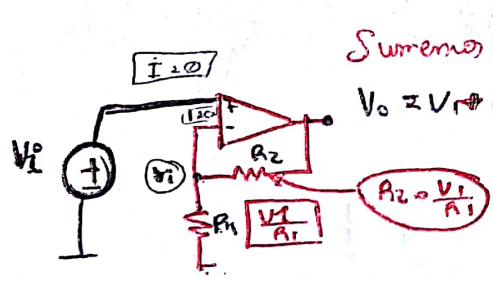 Sumemos
I=0
V₀ = V₁+
I=0
+
-
R2
Vi
+
V1
R2 • V1/R1
R1
V1/R1